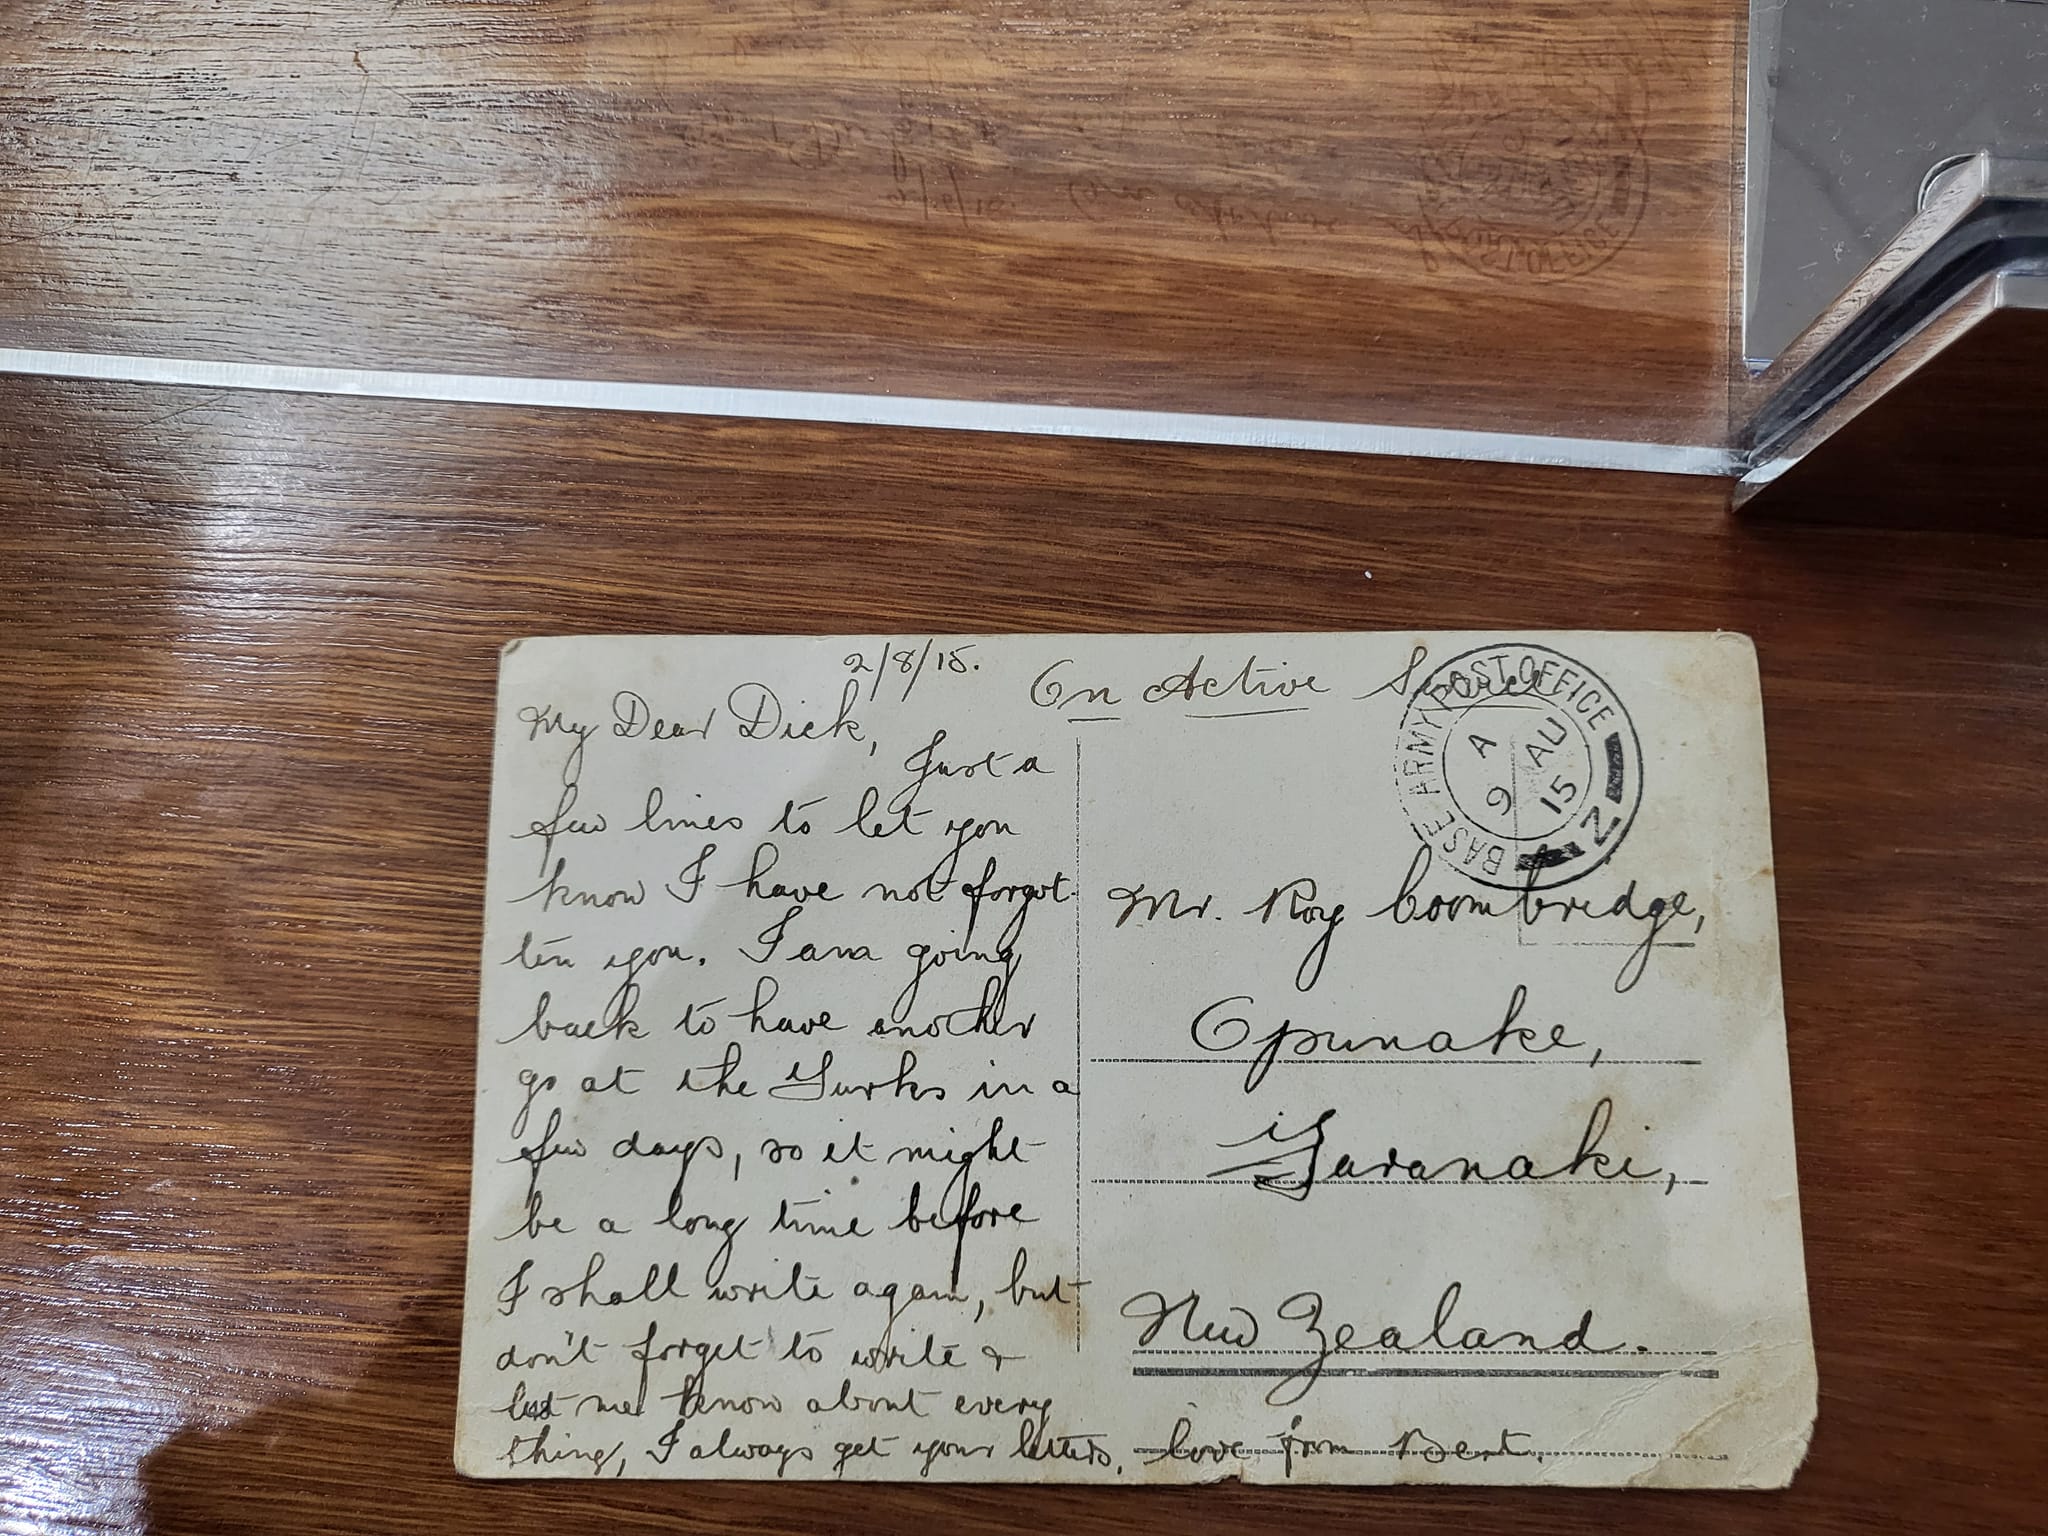 2/8/15.
On Active Service
My Dear Dick,
Just a
few lines to let you
know I have not forgot-
ten you. I am going
back to have another
go at the Turks in a
few days, so it might
be a long time before
I shall write again, but
don't forget to write &
let me know about every
thing, I always get your letters, love from Bert.
BASE ARMY POST OFFICE
A
9 AU
15
Z
Mr. Roy Coombridge,
Opunake,
Taranaki,
New Zealand.